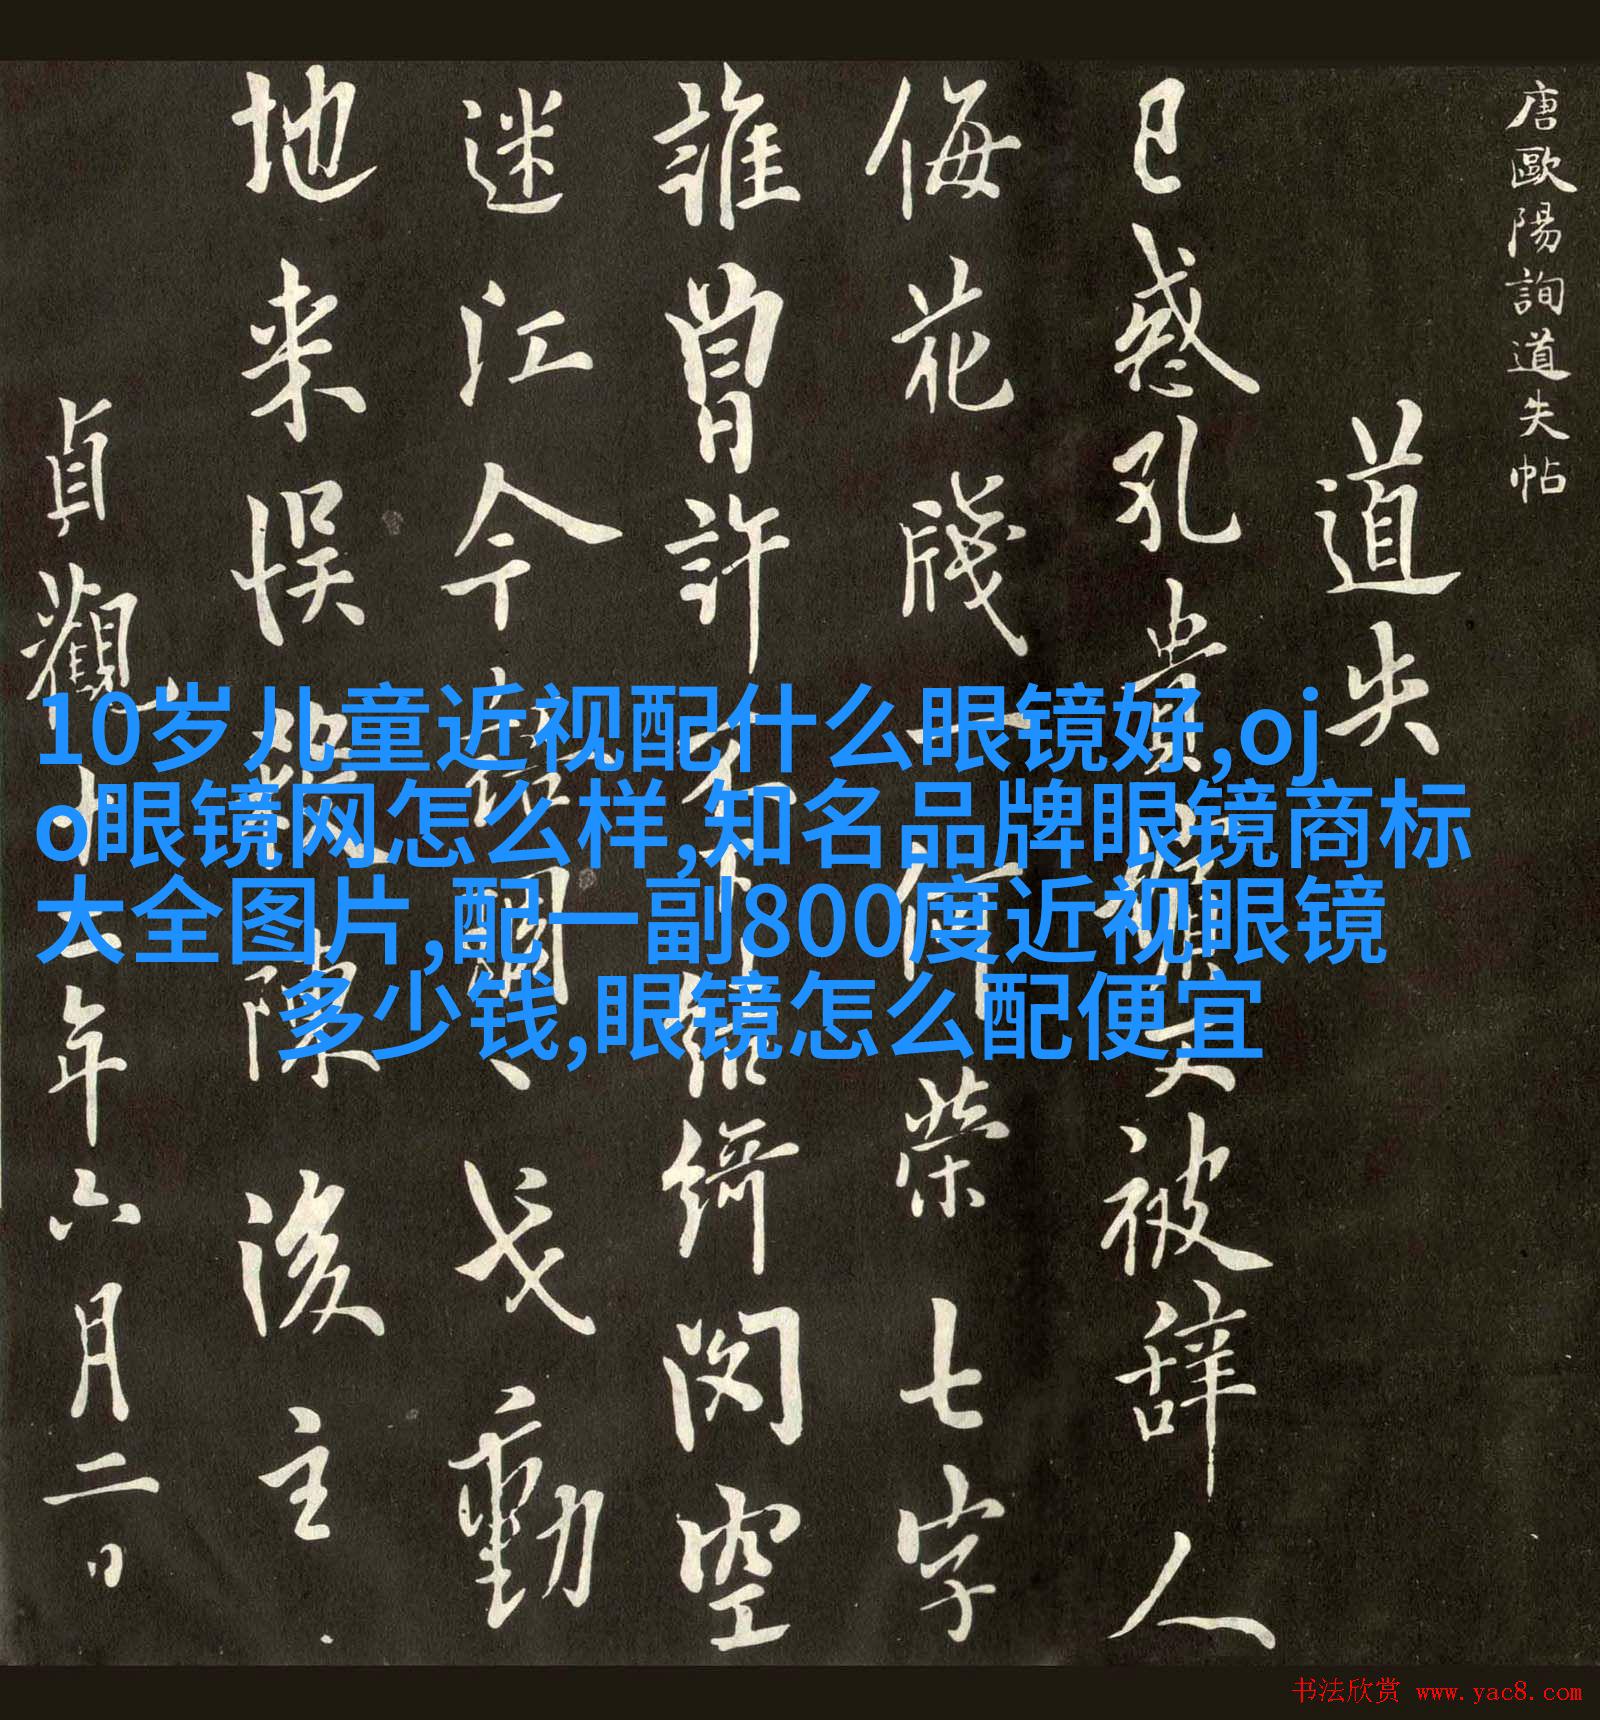 唐歐陽詢道失帖
道失
已惑孔貴嬪又被辞人
侮花牋一何榮七字
誰曾許不下結綺閃空
迷江令語凋戈動
地来悮報陳後主
貞觀十六年六月二日
10岁儿童近视配什么眼镜好,oj
o眼镜网怎么样,知名品牌眼镜商标
大全图片,配一副800度近视眼镜
多少钱,眼镜怎么配便宜
书法欣赏 www.yac8.com